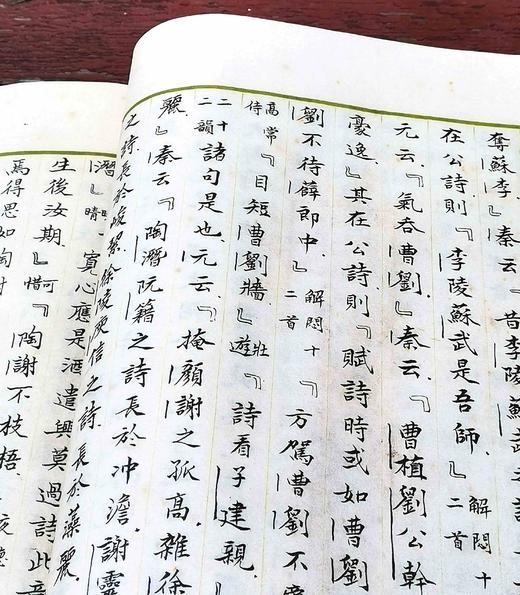 奪蘇李。』秦云『昔李陵蘇武
在公詩則『李陵蘇武是吾師。』解悶十二首
元云。『氣吞曹劉。』秦云。『曹植劉公幹
豪逸。』其在公詩則『賦詩時或如曹劉
劉不待薛郎中。』解悶十二首『方駕曹劉不
高常侍『目短曹劉牆。』壯遊『詩看子建親。』
二十二韻諸句是也。元云。『掩顏謝之孤高。雜徐
麗。』秦云『陶潛阮籍之詩長於冲澹。謝靈
之詩。長於峻潔。徐陵庾信之詩。長於藻麗。
潛。』晴一寬心應是酒遣興莫過詩此意
生後汝期。』可惜『陶謝不枝梧。
焉得思如陶謝